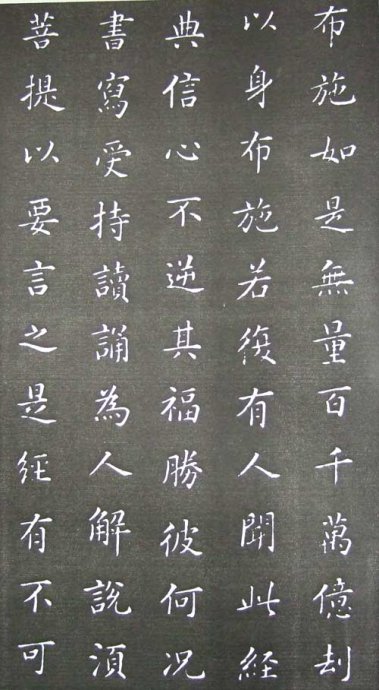 布施如是無量百千萬億刦
以身布施若復有人聞此経
典信心不逆其福勝彼何况
書寫受持讀誦為人解說湏
菩提以要言之是経有不可